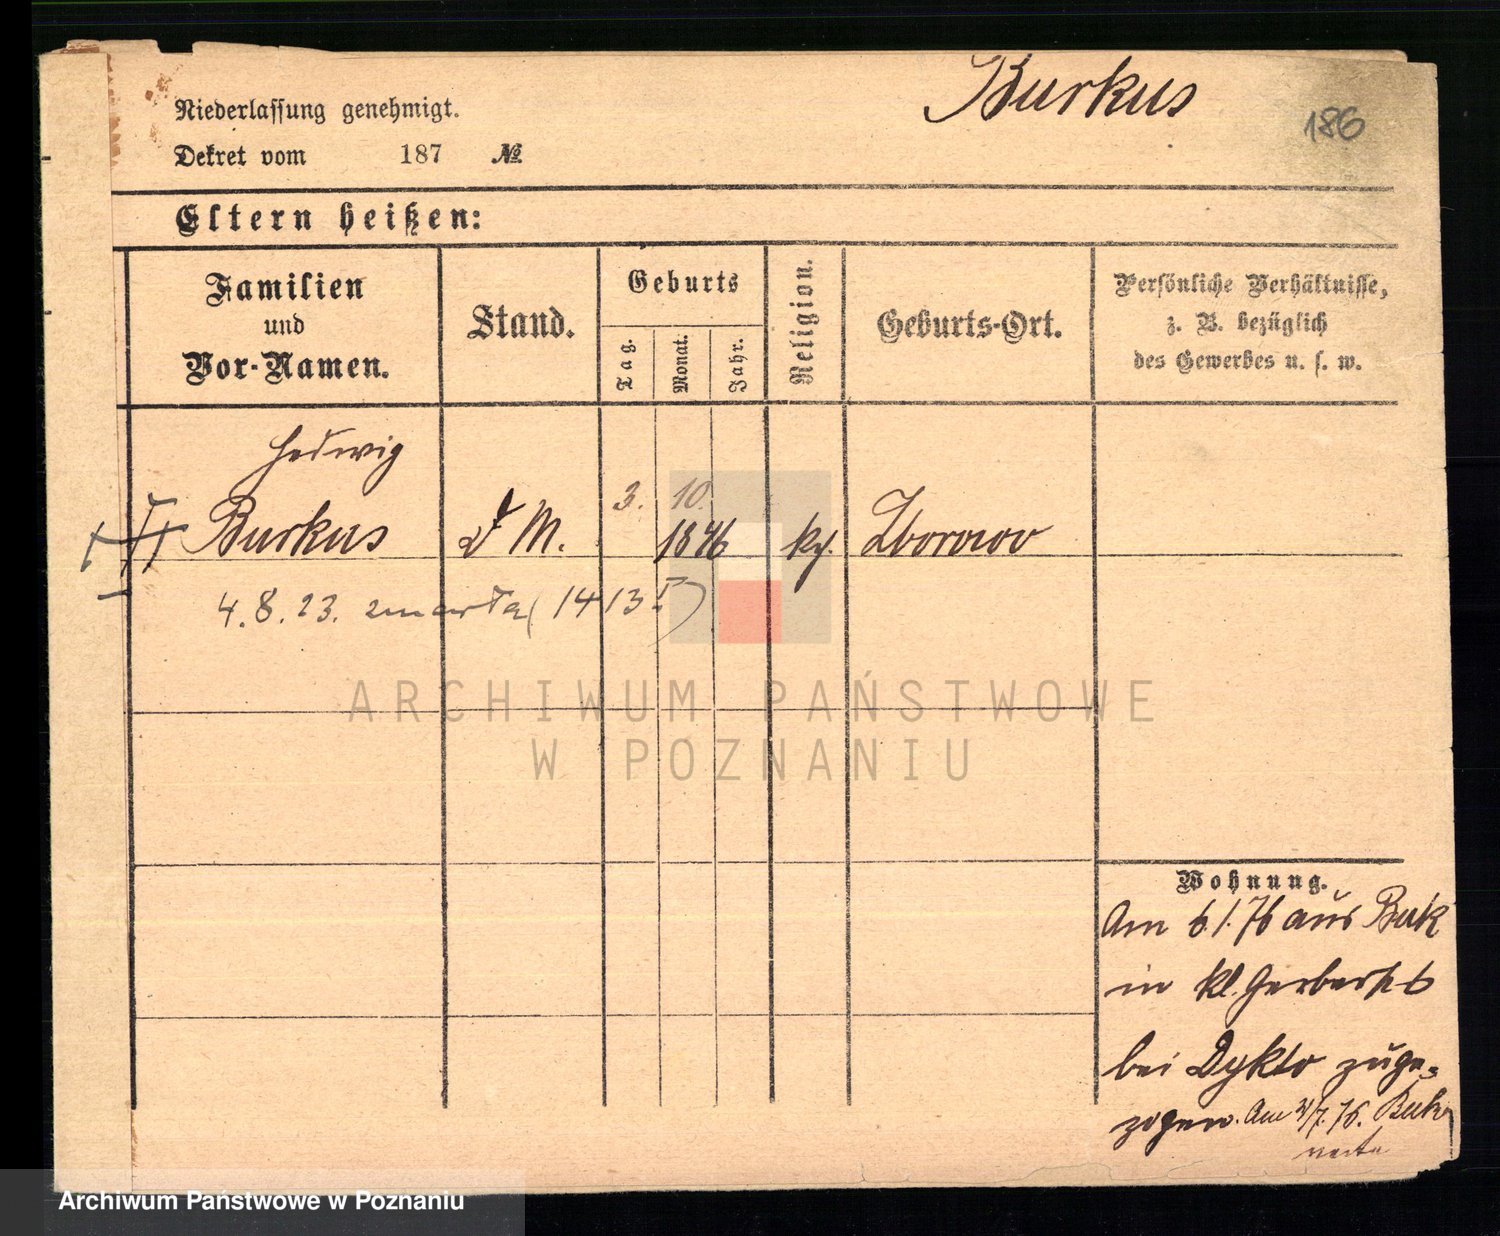 Burkus
186
Niederlassung genehmigt.
Dekret vom 187 №
Eltern heißen:
Familien
und
Vor-Namen.
Stand.
Geburts
Tag.
Monat.
Jahr.
Religion.
Geburts-Ort.
Persönliche Verhältnisse,
z. B. bezüglich
des Gewerbes u. s. w.
Hedwig
Burkus
D M.
3. 10.
1846
Zborowo
4.8.23. zmarła (1413 I)
Wohnung.
Am 6.1.76 aus Buk
in kl. Gerberstr 6
bei Dykto zuge-
zogen. Am 2/7.76. Buk
verte
ARCHIWUM PAŃSTWOWE
W POZNANIU
Archiwum Państwowe w Poznaniu